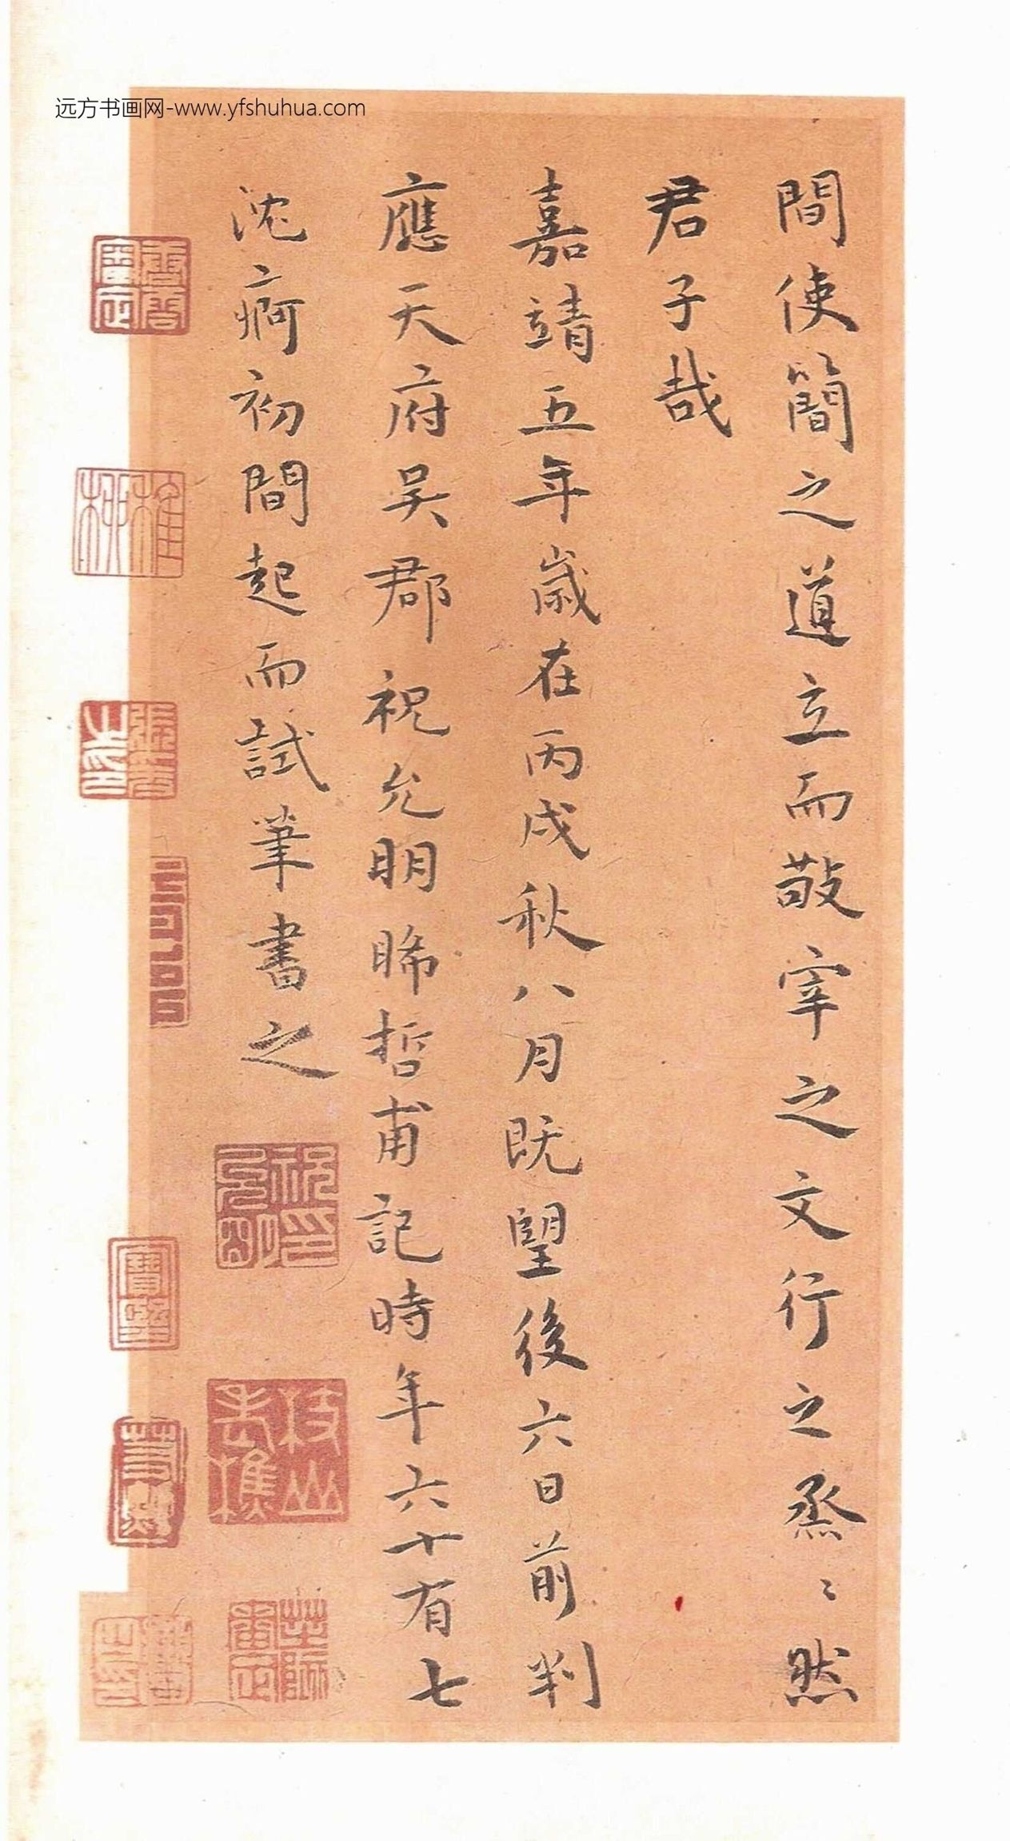 远方书画网-www.yfshuhua.com
間使簡之道立而敬宰之文行之烝〻然
君子哉
嘉靖五年歲在丙戌秋八月既望後六日前判
應天府吴郡祝允明晞哲甫記時年六十有七
沈痾初間起而試筆書之
祝印允明
枝山老樵